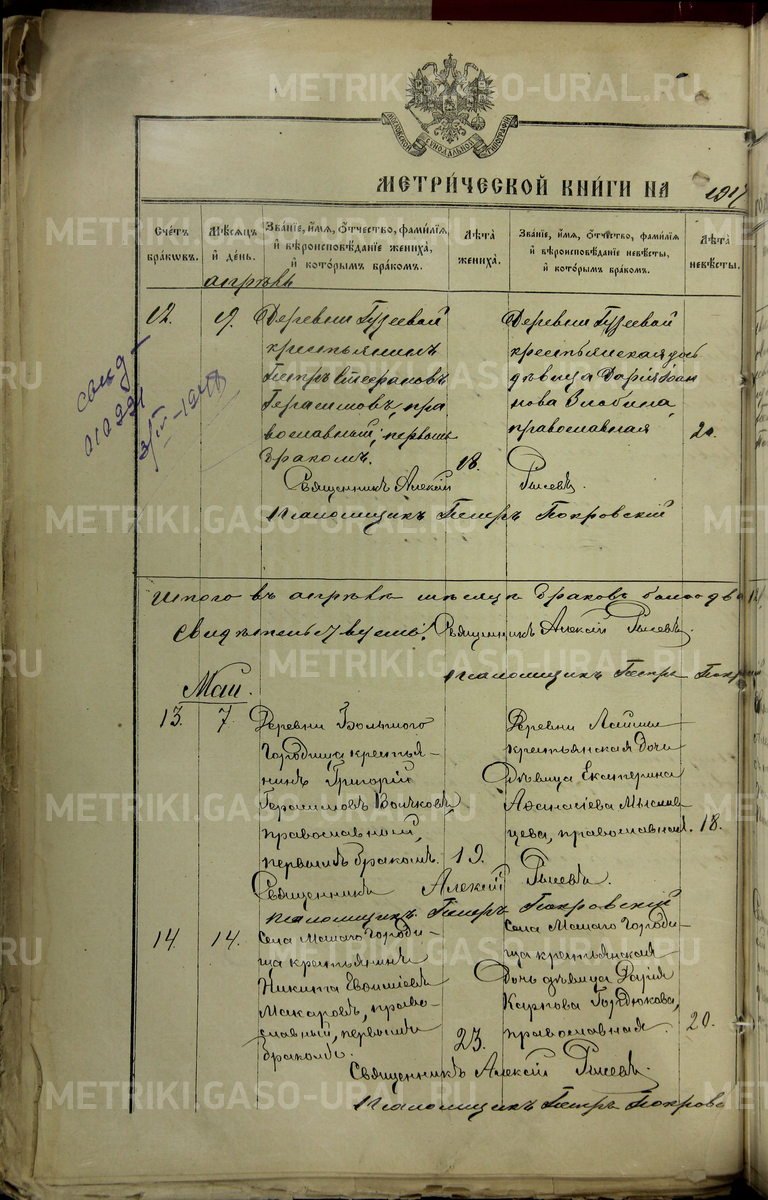 МОСКОВСКОЙ СѴНОДАЛЬНОЙ ТИПОГРАФІИ
МЕТРИ́ЧЕСКОЙ КНИ́ГИ НА 1917
Сче́тъ бра́кѡвъ.
Мѣ́сяцъ и҆ де́нь.
Зва́нїе, и҆́мѧ, ѻ҆́тчество, фамї́лїѧ, и҆ вѣроисповѣ́данїе жениха̀, и҆ кото́рымъ бра́комъ.
Лѣ́та жениха̀.
Зва́нїе, и҆́мѧ, ѻ҆́тчество, фамї́лїѧ и҆ вѣроисповѣ́данїе невѣ́сты, и҆ кото́рымъ бра́комъ.
Лѣ́та невѣ́сты.
апрѣль
12.
9.
Деревни Гузеевой
крестьянинъ
Петръ Стефановъ
Герасимовъ, пра
вославный, первымъ
бракомъ.
18.
Деревни Гузеевой
крестьянская дочь
дѣвица Дарія Іоан
нова Злобина,
православная
20.
Священникъ Алексій
Рылевъ.
Псаломщикъ Петръ Покровскій
3/IV-1948
Итого въ апрѣлѣ мѣсяцѣ браковъ было два
Свидѣтельствуемъ: Священникъ Алексій Рылевъ.
Псаломщикъ Петръ Покровскій
Май.
13.
7.
Деревни Большого
Городища крестья-
нинъ Григорій
Герасимовъ Волковъ,
православный,
первымъ бракомъ.
19.
Деревни Лаймы
крестьянская дочь
дѣвица Екатерина
Аѳанасіева Мысов
цева, православная.
18.
Священникъ Алексій Рылевъ.
Псаломщикъ Петръ Покровскій
14
14.
Села Малаго Городи-
ща крестьянинъ
Никита Евѳиміевъ
Макаровъ, право-
славный, первымъ
бракомъ.
23.
Села Малаго Городи-
ща крестьянская
дочь дѣвица Дарія
Карпова Гордюкова,
православная.
20.
Священникъ Алексій Рылевъ.
Псаломщикъ Петръ Покровс
METRIKI.GASO-URAL.RU